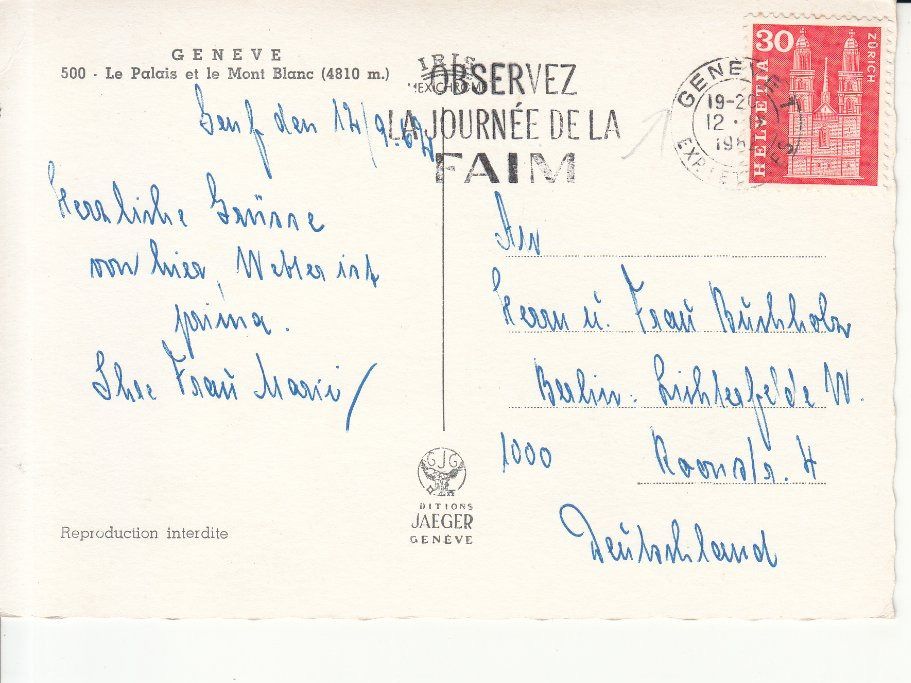 GENEVE
500 - Le Palais et le Mont Blanc (4810 m.)
IRIS
MEXICHROME
OBSERVEZ
LA JOURNÉE DE LA
FAIM
GENÈVE 1
19-20
12.
196
30
HELVETIA
ZÜRICH
Genf den 12/9.62
Herzliche Grüsse
von hier, Wetter ist
prima.
Ihre Frau Marie
An
Herrn u. Frau Buchholz
Berlin - Lichterfelde W.
1000 Roonstr. 4
Deutschland
GJG
EDITIONS
JAEGER
GENÈVE
Reproduction interdite